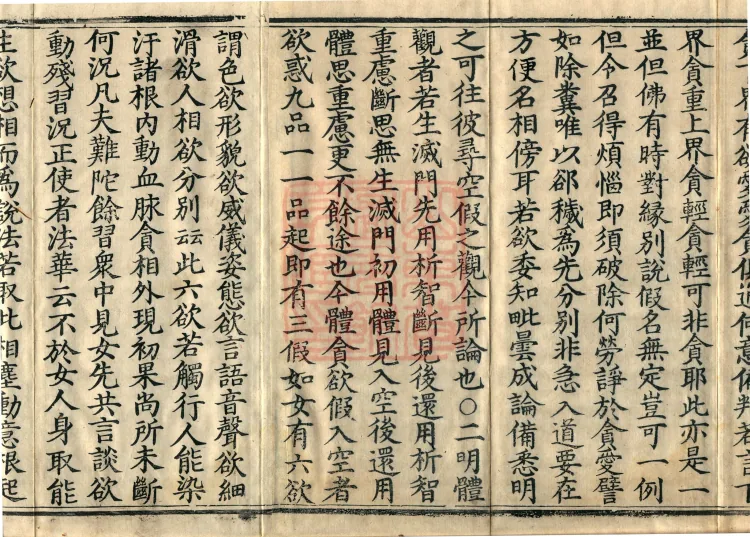 界貪重上界貪輕貪輕可非貪耶此亦是一
並但佛有時對緣別說假名無定豈可一例
但令召得煩惱即須破除何勞諍於貪愛譬
如除糞唯以郤穢為先分別非急入道要在
方便名相傍耳若欲委知毗曇成論備悉明
之可往彼尋空假之觀今所論也〇二明體
觀者若生滅門先用析智斷見後還用析智
重慮斷思無生滅門初用體見入空後還用
體思重慮更不餘途也今體貪欲假入空者
欲惑九品一一品起即有三假如女有六欲
謂色欲形貌欲威儀姿態欲言語音聲欲細
滑欲人相欲分別云云此六欲若觸行人能染
汙諸根內動血脉貪相外現初果尚所未斷
何況凡夫難陀餘習衆中見女先共言談欲
動殘習況正使者法華云不於女人身取能
生欲想相而為說法若取此相塵動意根起